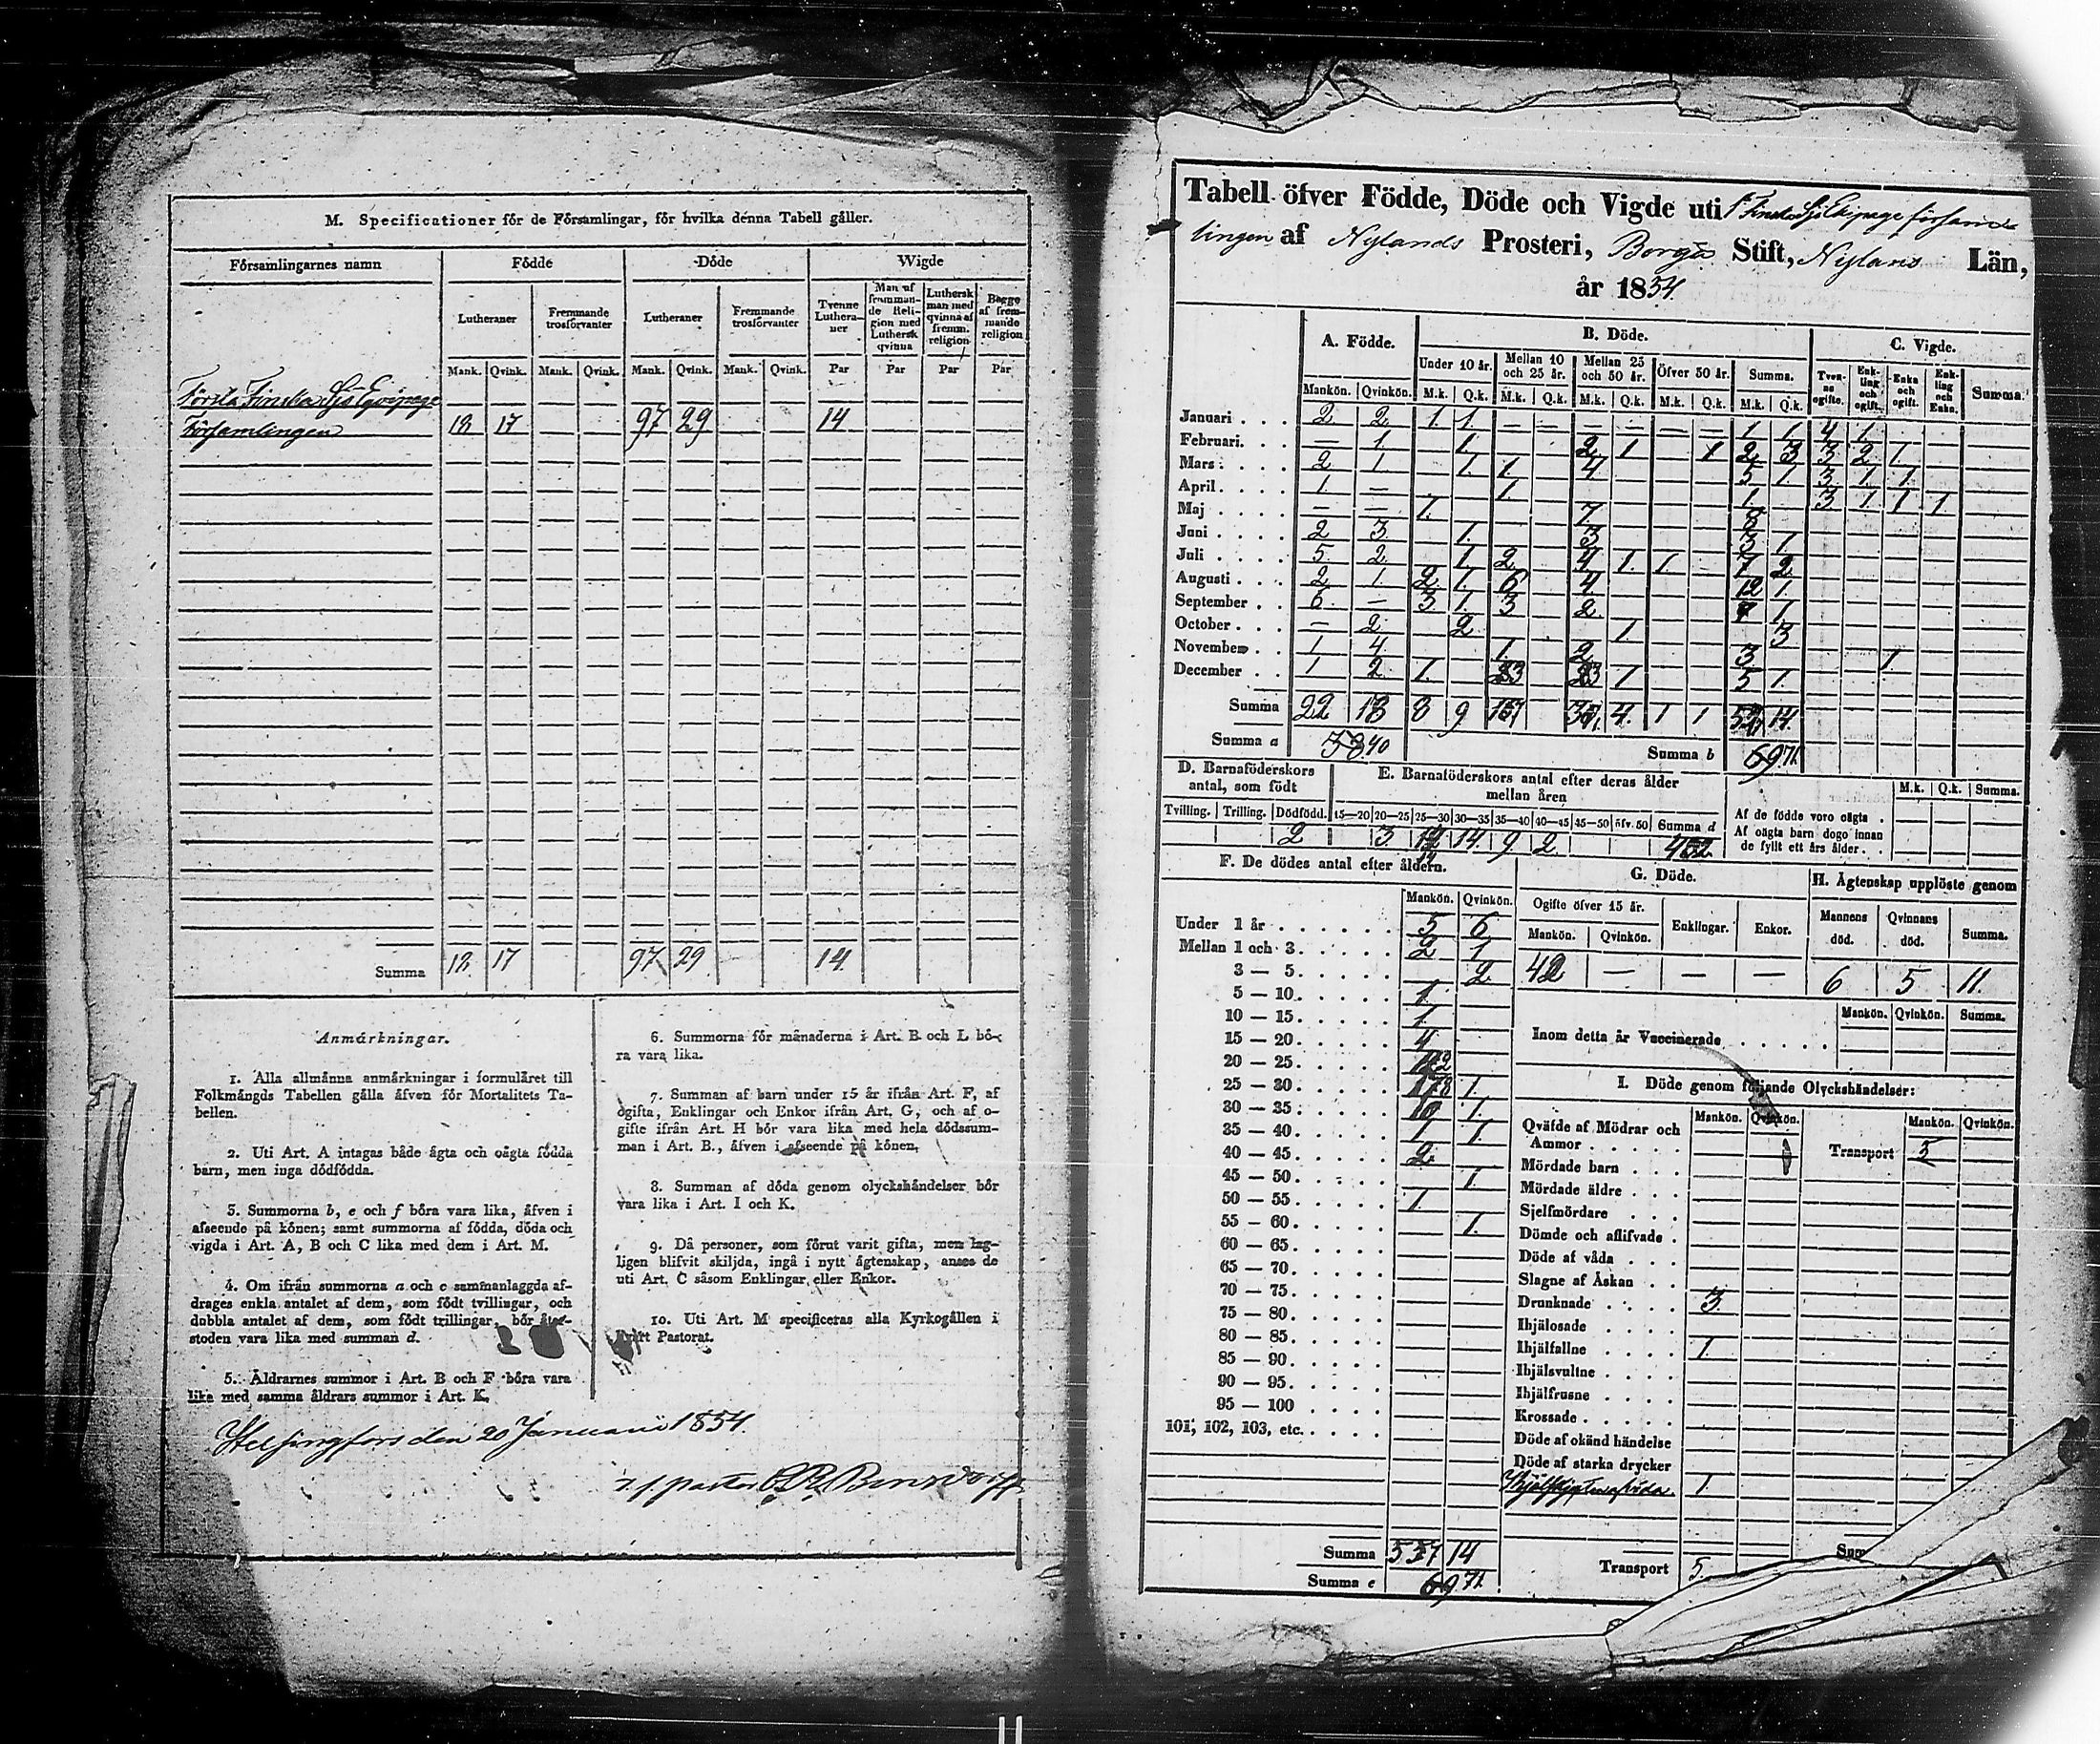 M. Specificationer för de Församlingar, för hvilka denna Tabell gäller.
Församlingarnes namn | Födde | Döde | Wigde
Lutheraner | Fremmande trosförvanter | Lutheraner | Fremmande trosförvanter | Tvenne Lutheraner | Man af främmande Religion med Luthersk qvinna | Luthersk man med qvinna af fremm. religion | Begge af fremmande religion
Mank. | Qvink. | Mank. | Qvink. | Mank. | Qvink. | Mank. | Qvink. | Par | Par | Par | Par
Första Finska Sjö Equipage
Församlingen 18 17 97 29 14
Summa 18 17 97 29 14
Anmärkningar.
1. Alla allmänna anmärkningar i formuläret till
Folkmängds Tabellen gälla äfven för Mortalitets Ta-
bellen.
2. Uti Art. A intagas både ägta och oägta födda
barn, men inga dödfödda.
3. Summorna b, e och f böra vara lika, äfven i
afseende på könen; samt summorna af födda, döda och
vigda i Art. A, B och C lika med dem i Art. M.
4. Om ifrån summorna a och c sammanlaggda af-
drages enkla antalet af dem, som födt tvillingar, och
dubbla antalet af dem, som födt trillingar, bör åter-
stoden vara lika med summan d.
5. Åldrarnes summor i Art. B och F böra vara
lika med samma åldrars summor i Art. K.
6. Summorna för månaderna i Art. B och L bö-
ra vara lika.
7. Summan af barn under 15 år ifrån Art. F, af
ogifta, Enklingar och Enkor ifrån Art. G, och af o-
gifte ifrån Art. H bör vara lika med hela dödssum-
man i Art. B., äfven i afseende på könen.
8. Summan af döda genom olyckshändelser bör
vara lika i Art. I och K.
9. Då personer, som förut varit gifta, men lag-
ligen blifvit skiljda, ingå i nytt ägtenskap, anses de
uti Art. C såsom Enklingar eller Enkor.
10. Uti Art. M specificeras alla Kyrkogällen i
Pastorat.
Helsingfors den 20 Januari 1854.
Tabell öfver Födde, Döde och Vigde uti 1 Finska Sjö Ekipage försam
lingen af Nylands Prosteri, Borgå Stift, Nylands Län,
år 1854.
A. Födde. | B. Döde. | C. Vigde.
Under 10 år. | Mellan 10 och 25 år. | Mellan 25 och 50 år. | Öfver 50 år. | Summa. | Tvenne ogifte. | Enkling och ogift. | Enka och ogift. | Enkling och Enka. | Summa.
Mankön. | Qvinkön. | M.k. | Q.k. | M.k. | Q.k. | M.k. | Q.k. | M.k. | Q.k. | M.k. | Q.k.
Januari 2 2 1 1 — — — — — — 1 1 4 1
Februari — 1 1 2 1 1 2 3 3 2 1
Mars 2 1 1 1 4 5 1 3 1 1
April 1 — 1 1 3 1 1 1
Maj — — 1 7 8
Juni 2 3 1 3 3 1
Juli 5 2 1 2 4 1 1 7 2
Augusti 2 1 2 1 6 4 12 1
September 6 — 3 1 3 2 1
October — 2 2 1 3
November 1 4 1 2 3 1
December 1 2 1 1 5 1
Summa 22 18 8 9 4 1 1 14
Summa a 38 40 Summa b 69 71
D. Barnaföderskors antal, som födt
E. Barnaföderskors antal efter deras ålder mellan åren
M.k. | Q.k. | Summa.
Tvilling. | Trilling. | Dödfödd. | 15—20 | 20—25 | 25—30 | 30—35 | 35—40 | 40—45 | 45—50 | öfv. 50 | Summa d
2 3 14 9 2
Af de födde voro oägta .
Af oägta barn dogo innan
de fyllt ett års ålder. .
F. De dödes antal efter åldern.
Mankön. | Qvinkön.
Under 1 år 5 6
Mellan 1 och 3 2 1
3 — 5 2
5 — 10 1
10 — 15 1
15 — 20 4
20 — 25
25 — 30 1
30 — 35 10 1
35 — 40 1 1
40 — 45 2
45 — 50 1
50 — 55 1
55 — 60 1
60 — 65
65 — 70
70 — 75
75 — 80
80 — 85
85 — 90
90 — 95
95 — 100
101, 102, 103, etc.
Summa 14
Summa e 69 71
G. Döde.
Ogifte öfver 15 år. | Enklingar. | Enkor.
Mankön. | Qvinkön.
42 — — —
H. Ägtenskap upplöste genom
Mannens död. | Qvinnans död. | Summa.
6 5 11
Mankön. | Qvinkön. | Summa.
Inom detta år Vaccinerade
I. Döde genom följande Olyckshändelser:
Mankön. | Qvinkön. | Mankön. | Qvinkön.
Qväfde af Mödrar och
Ammor
Transport 5
Mördade barn
Mördade äldre
Sjelfmördare
Dömde och aflifvade
Döde af våda
Slagne af Åskan
Drunknade 3
Ihjälosade
Ihjälfallne 1
Ihjälsvultne
Ihjälfrusne
Krossade
Döde af okänd händelse
Döde af starka drycker
1
Transport 5